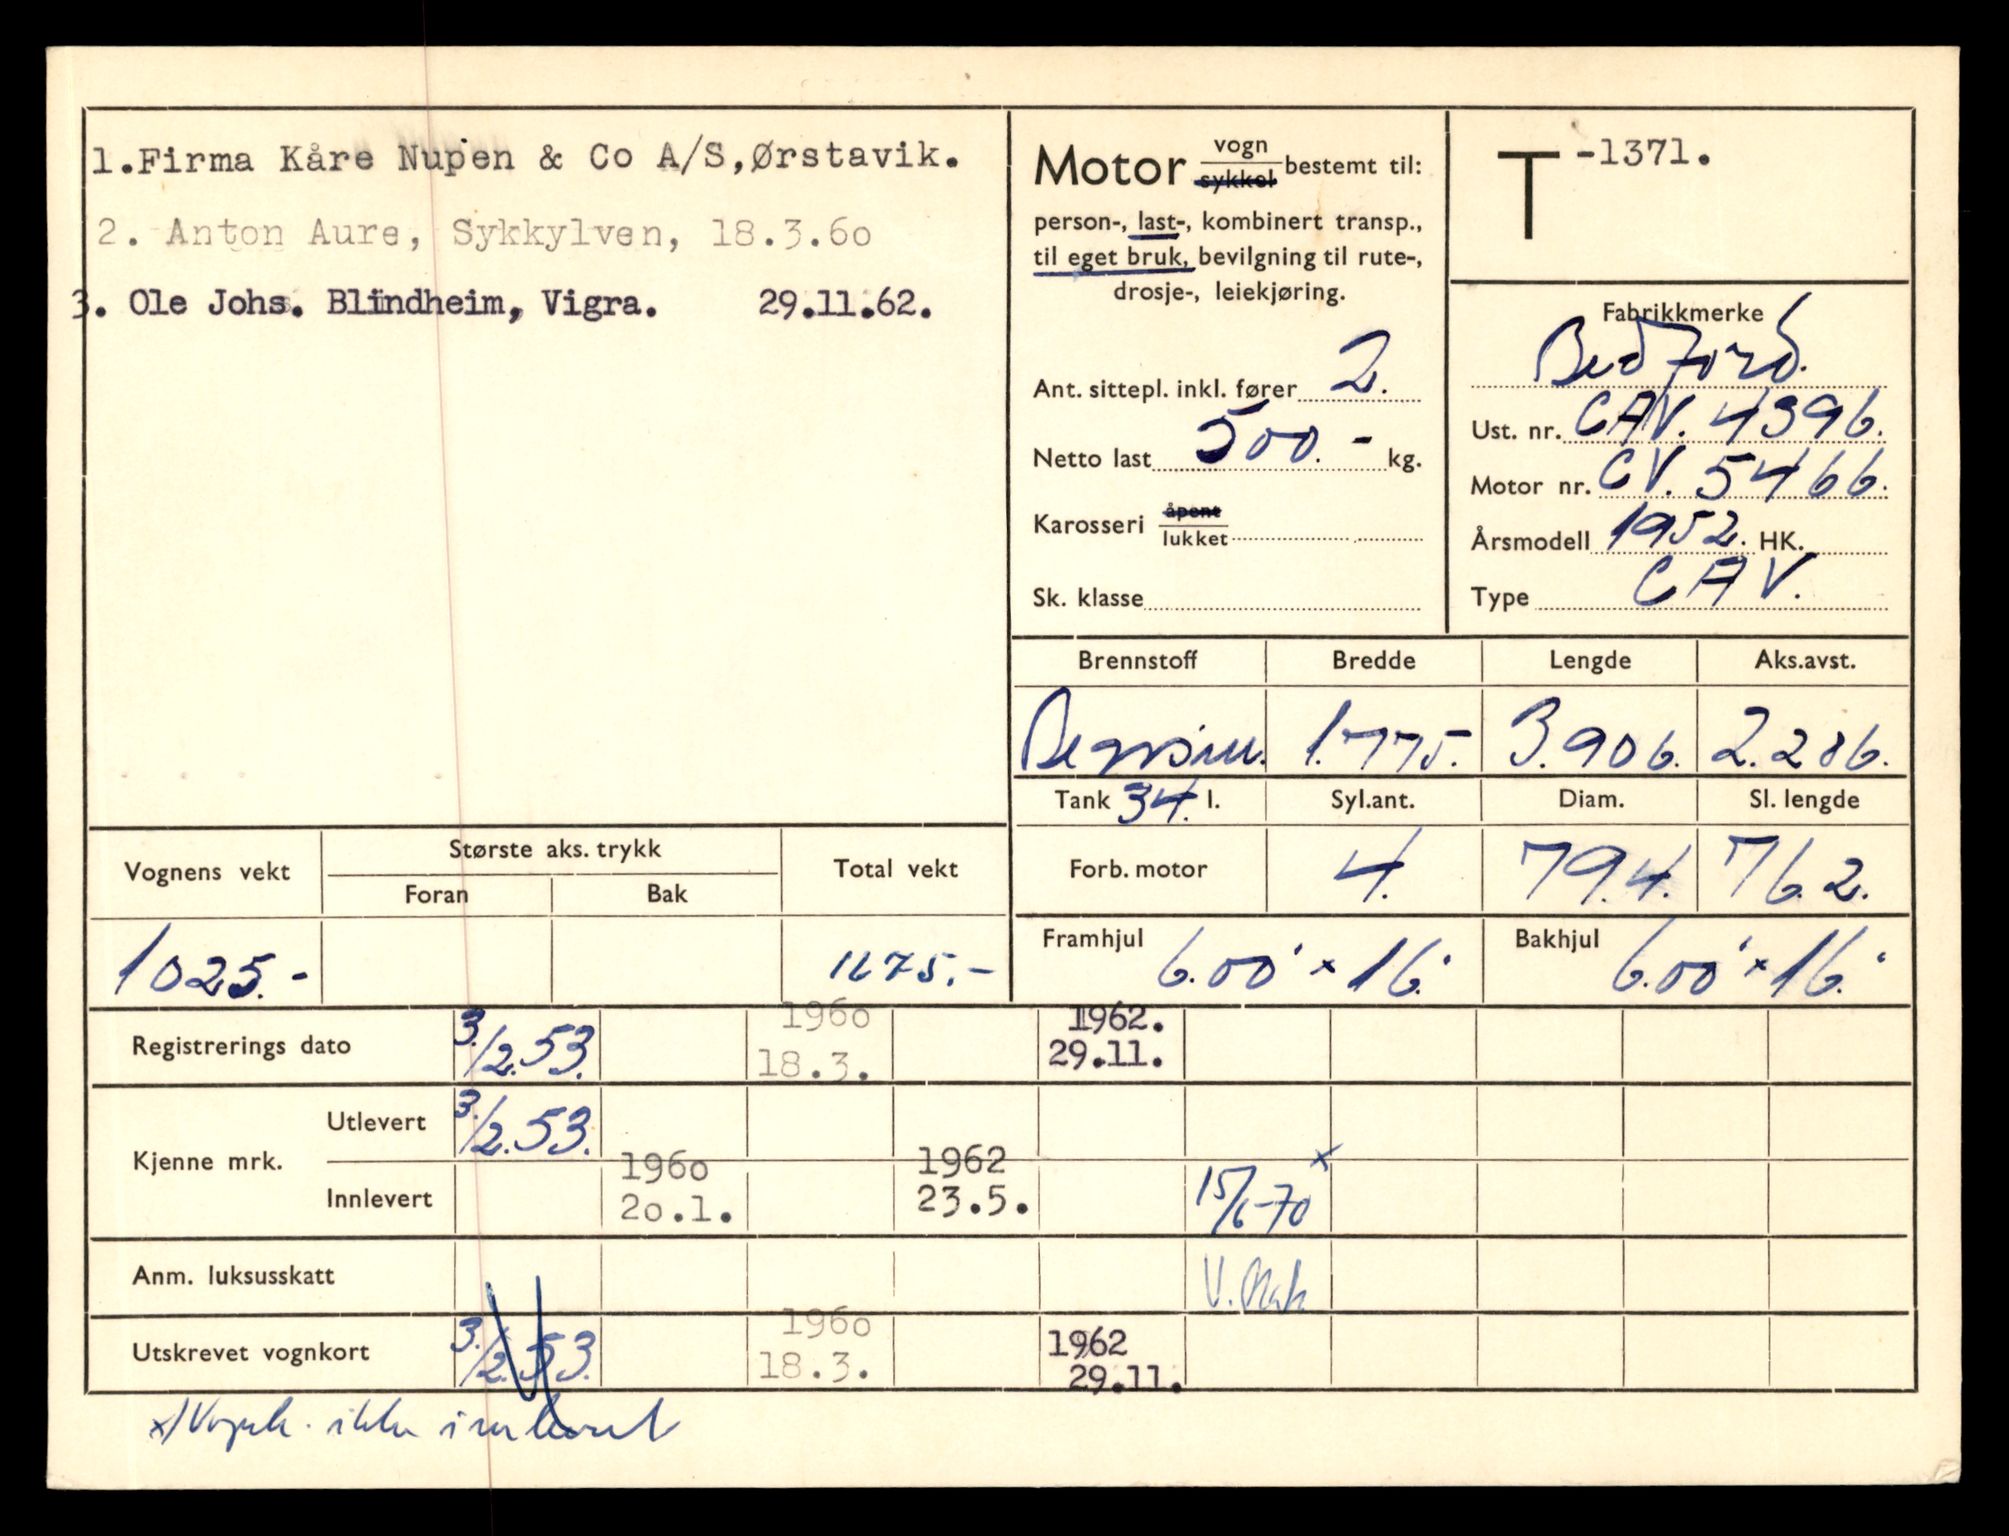 1.Firma Kåre Nupen & Co A/S,Ørstavik.
2. Anton Aure, Sykkylven, 18.3.60
3. Ole Johs. Blindheim, Vigra. 29.11.62.
Motor vogn sykkel bestemt til:
person-, last-, kombinert transp.,
til eget bruk, bevilgning til rute-,
drosje-, leiekjøring.
Ant. sittepl. inkl. fører 2.
Netto last 500.- kg.
Karosseri åpent lukket
Sk. klasse
T -1371.
Fabrikkmerke
Bedford.
Ust. nr. CAV. 4396.
Motor nr. CV. 5466.
Årsmodell 1952. HK.
Type CAV.
Brennstoff Bredde Lengde Aks.avst.
Bensin. 1.775. 3.906. 2.286.
Tank 34. l. Syl.ant. Diam. Sl. lengde
Forb. motor 4. 79.4. 76.2.
Framhjul 6.00" x 16." Bakhjul 6.00" x 16."
Vognens vekt Største aks. trykk Total vekt
Foran Bak
1025.- 1675.-
Registrerings dato 3./2.53. 1960 18.3. 1962. 29.11.
Kjenne mrk. Utlevert 3./2.53.
Innlevert 1960 20.1. 1962 23.5. 15/6-70 x
Anm. luksusskatt V.
Utskrevet vognkort 3./2.53. 1960 18.3. 1962 29.11.
x) Vognk. ikke innlevert